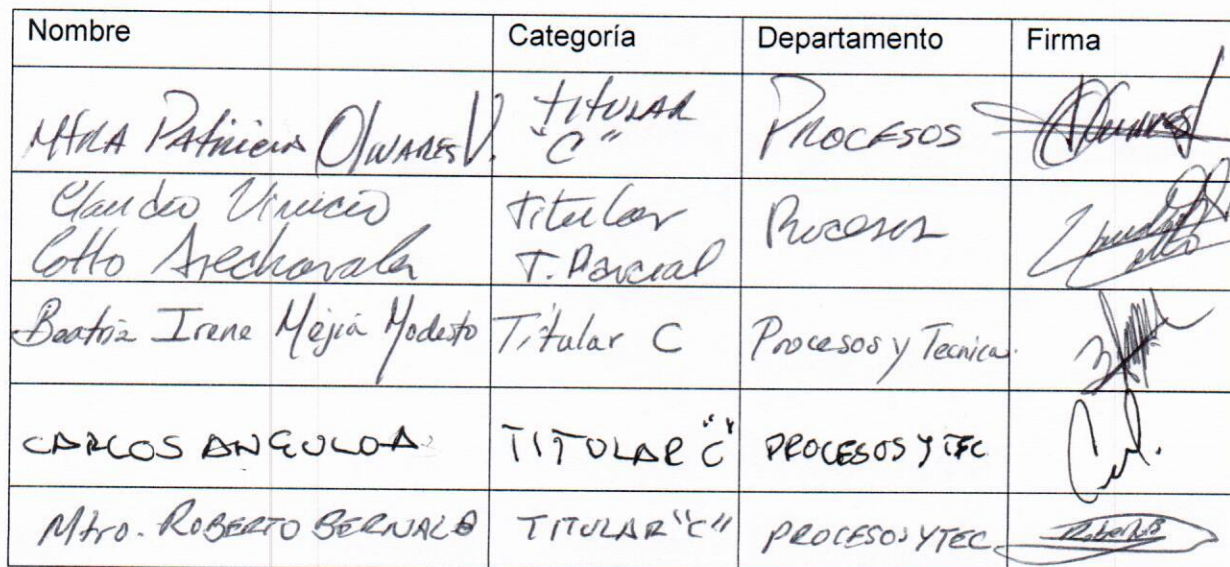 Nombre Categoría Departamento Firma
Mtra Patricia Olivares V. TITULAR "C" PROCESOS Olivares
Claudio Vinicio Cotto Arechavala Titular T. Parcial Procesos
Beatriz Irene Mejía Modesto Títular C Procesos y Tecnica.
CARLOS ANGULO A TITULAR "C" PROCESOS Y TEC
Mtro. ROBERTO BERNAL B TITULAR "C" PROCESOS Y TEC RobertoB